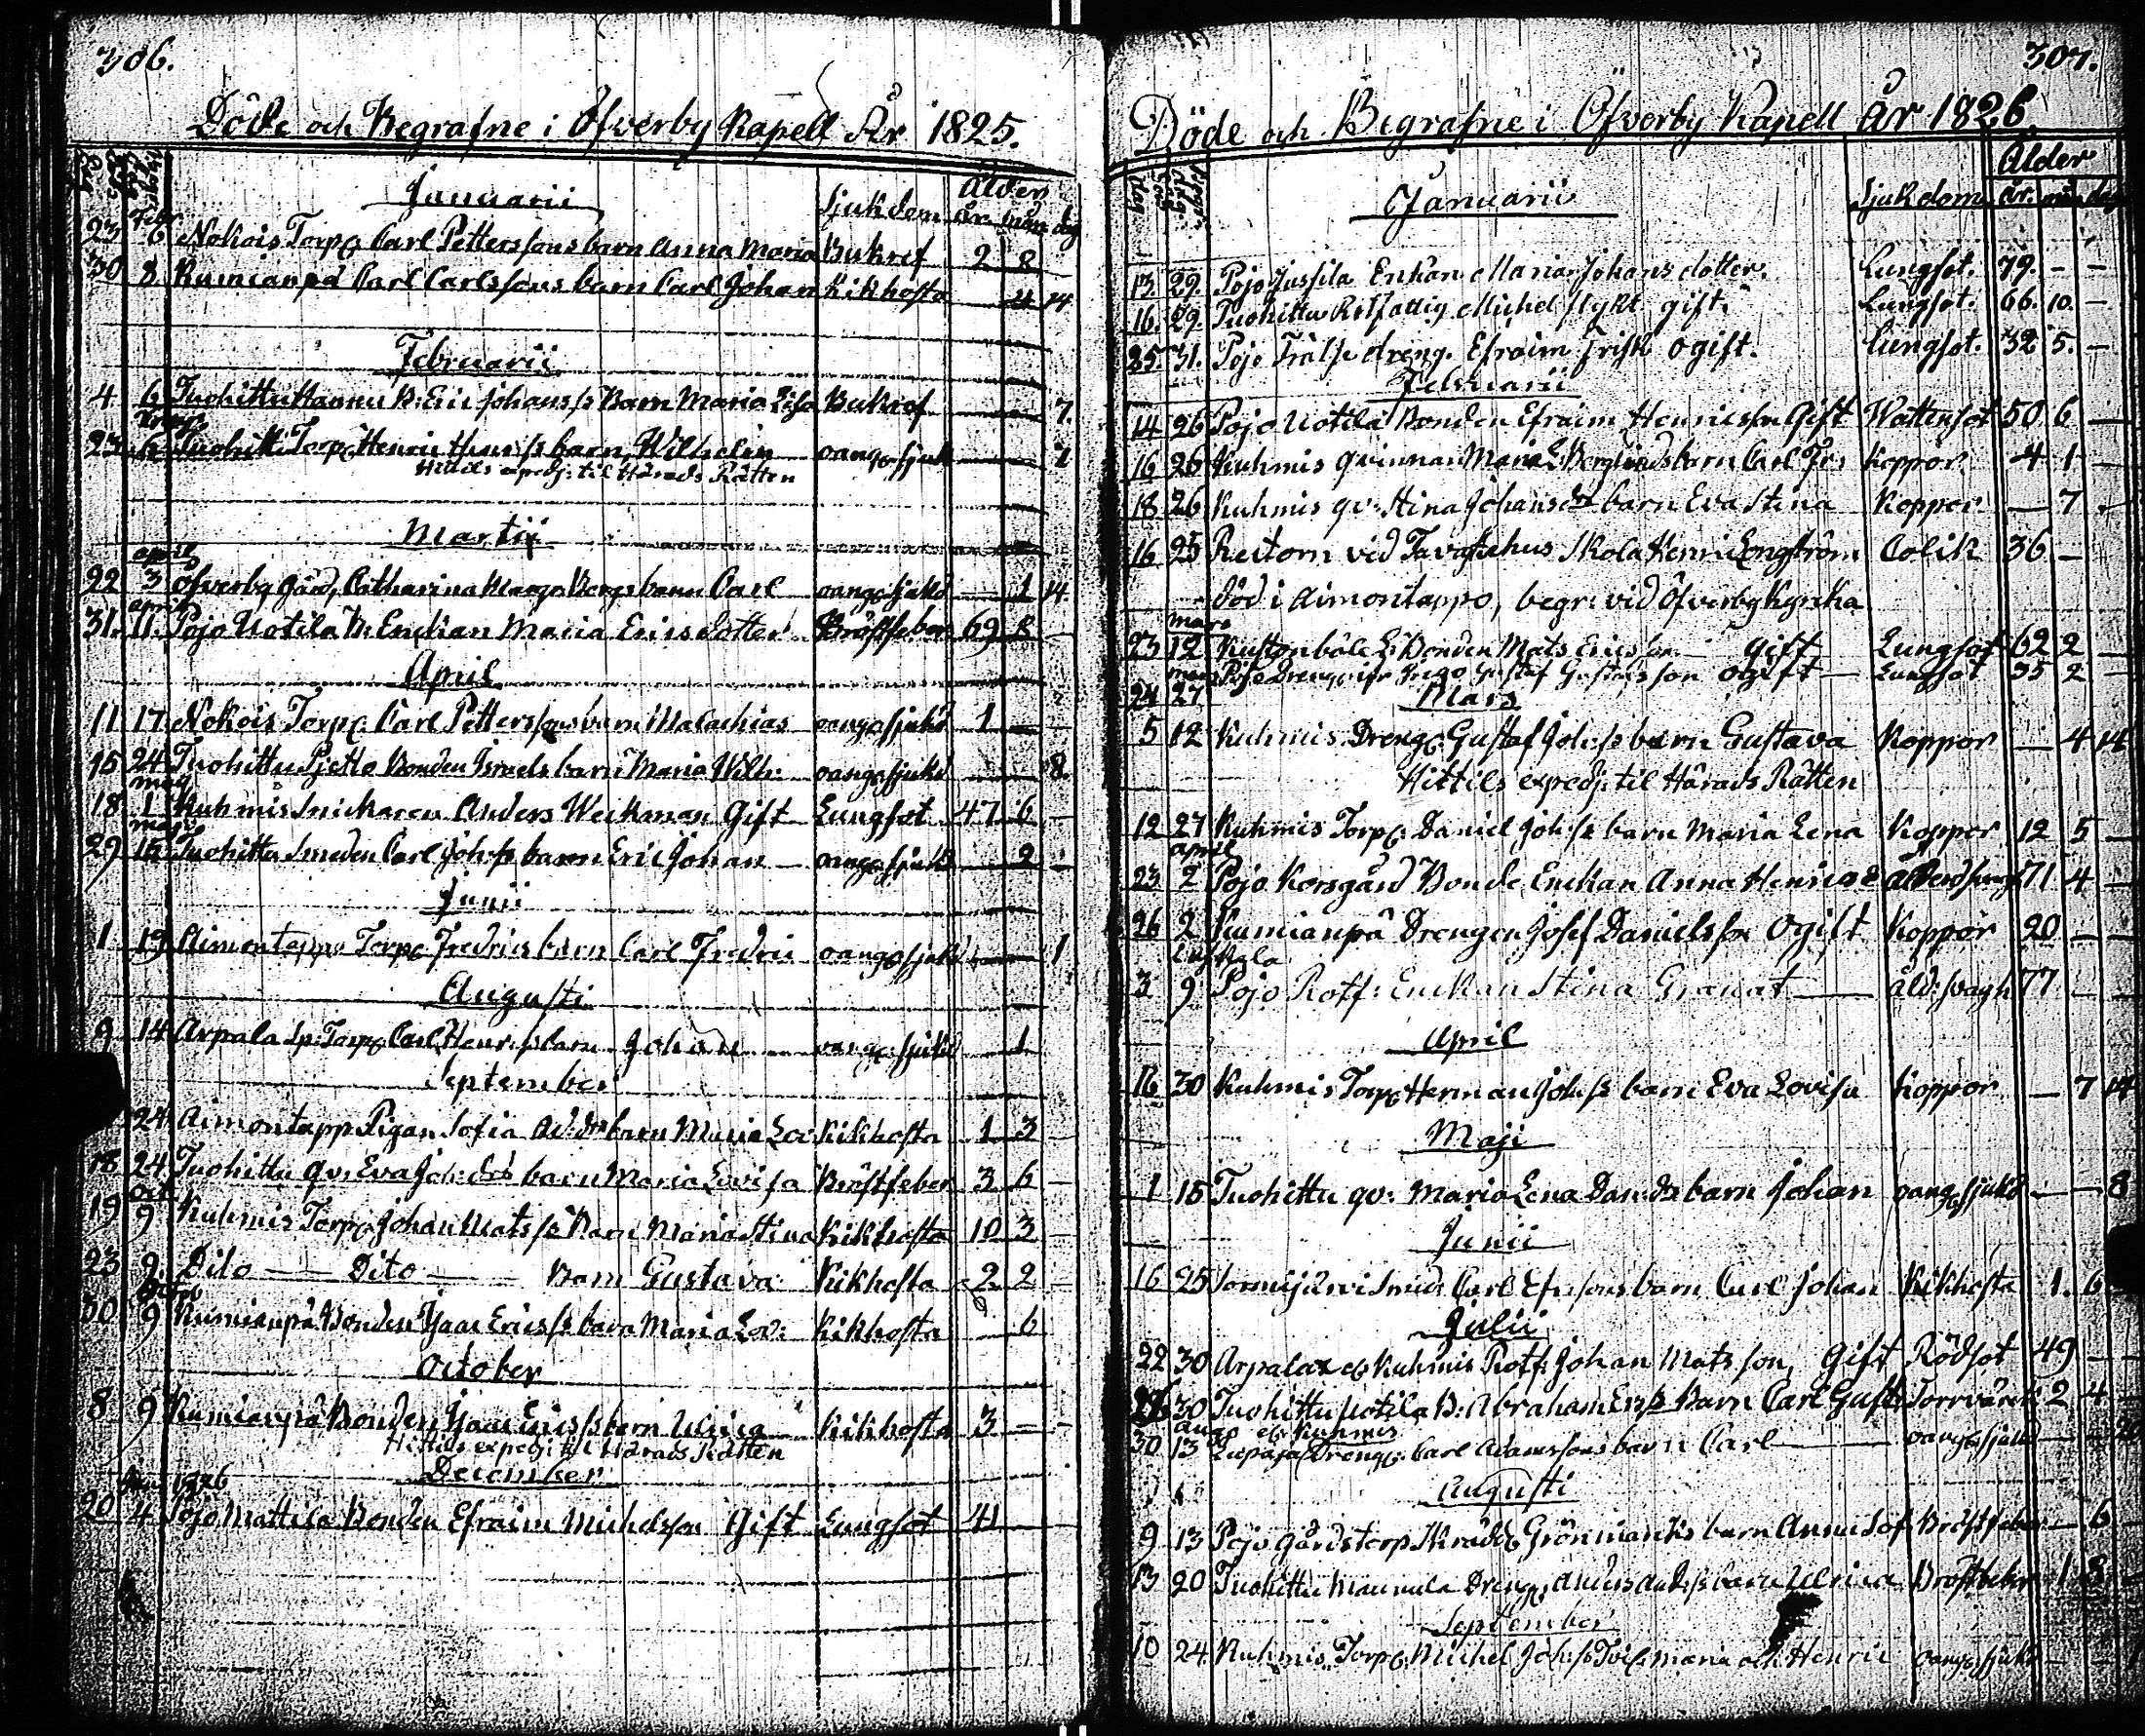 306.
Döde och Begrafne i Öfverby Kapell År 1825.
Januarii Sjukdom Ålder år mån dag
Febr
23 6 Nokois Torp. Carl Petterssons barn Anna Maria Bukref 2 8
30 8 Kumianpä Carl Carlssons barn Carl Johan Kikhosta 4 14
Februarii
4 6 Tuohittu Hannu B: Eric Johanss: Barn Maria Lisa Bukref 7.
23 6 Tuohitt Torp. Henric Henrss: barn Wilhelm oang. sjuk
Hittils exped: til Härads Rätten
Martii
april
22 3 Öfverby Gård, Catharina barn Carl oang. sjukd 1 14
april
31. 11. Pojo Uotila B. Enckan Maria Ericsdotter Bröstfeber 69 8
April
11 17 Nokois Torp. Carl Petterssons barn Malachias oang. sjukd 1
15 24 Tuohittu Bonden Israels barn Maria Wilh: oang. sjukd 8.
maj
18 1 Kuhmis Snickaren Anders Weckman Gift Lungsot 47 6
maji
29 15 Tuohittu Smeden Carl Joh:ss barn Eric Johan oang. sjukd 2
Junii
1 19 Aimontappo Torp. Fredrics barn Carl Fredric oang. sjukd 1
Augusti
9 14 Arpala Sp: Torp. Carl Henr:ss barn Johan oang. sjukd 1
September
24 Aimontapp Pigan Sofia Ad:dr barn Maria Lov: Kikhosta 1 3
18 24 Tuohittu qv: Eva Joh:dr barn Maria Lovisa Bröstfeber 3 6
oct
19 9 Kuhmis Torp. Johan Matsss: Barn Maria Stina Kikhosta 10 3
23 9 Dito — Dito — Barn Gustava Kikhosta 2 2
30 9 Kumianpä Bonden Isaac Ericss: barn Maria Lov: Kikhosta 6
October
8 9 Kumianpä Bonden Isaac Ericss barn Ulrica Kikhosta 3
Hittils exped: til Härads Rätten
December
1826
20 4 Pojo Mattila Bonden Efraim Michelsson Gift Lungsot 41
307.
Döde och Begrafne i Öfverby Kapell År 1826.
Januarii Sjukdom Ålder år. mån dag
13 29. Pojo Jussila Enkan Maria Johans dotter. Lungsot. 79. - -
16. 29. Tuohittu Rotfattig Michel Flykt gift. Lungsot. 66. 10. -
25. 31. Pojo Frälse dreng. Efraim Frisk ogift. Lungsot. 32 5. -
Februarii
14 26 Pojo Uotila Bonden Efraim Henricsson Gift Wattensot 50 6
16 26 Kuhmis Qvinnan Maria L. Berglinds barn Carl Fr: Koppor 4 1
18 26 Kuhmis qv: Stina Johansdr barn Eva Stina Koppor — 7
16 25 Rectorn vid Tavastehus Skola Henric Longström Colik 36 -
död i Aimontappo, begr: vid Öfverby Kyrka
mars
23 12 L: Bonden Mats Ericsson gift Lungsot 62 2
mars
24 27 Pojo Dreng. Gustaf Gustafsson ogift — Lungsot 35 2
Mars
5 12 Kuhmis Dreng. Gustaf Joh:ss barn Gustava Koppor — 4 14
Hittils exped: til Härads Rätten
12 27 Kuhmis Torp. Daniel Joh:ss barn Maria Lena Koppor 12 5
april
23 2 Pojo Korsgård Bonde Enckan Anna Henricsd 71 4
26 2 Kumianpä Drengen Josef Danielsson Ogift Koppor 20
3 9 Pojo Rotf: Enckan Stina Granat — åld: svagh 77
April
16 30 Kuhmis Torp. Herman Joh:ss barn Eva Lovisa Koppor — 7 14
Maji
1 15 Tuohittu qv: Maria Lena Dan:dr barn Johan oang. sjukd — — 8
Junii
16 25 Sormijärvi Smed. Carl Efr:sons barn Carl Johan Kikhosta 1. 6
Julii
22 30 Kuhmis Rotf: Johan Matsson, Gift Rödsot 49
30 Tuohittu Uotila B: Abraham Ericss Barn Carl Gust: Torrvärk 2 4
Aug Kuhmis
30 13 Dreng. Carl Adamssons barn Carl — oang. sjukd — — 20
Augusti
9 13 Pojo Gårdstorp Skrädd. Grönmarks barn Anna Sof. Bröstfeber — 6
13 20 Tuohittu Maunula Dreng. Anders And:ss barn Ulrica Bröstfeber 1 8
September
10 24. Kuhmis Torp. Michel Joh:ss Maria och Henric oang. sjukd